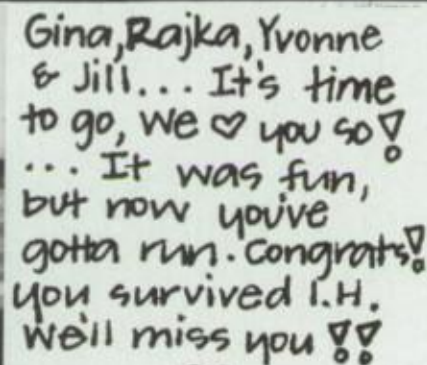 Gina, Rajka, Yvonne
& Jill... It's time
to go, we ♡ you so!
... It was fun,
but now you've
gotta run. Congrats!
you survived I.H.
We'll miss you !!